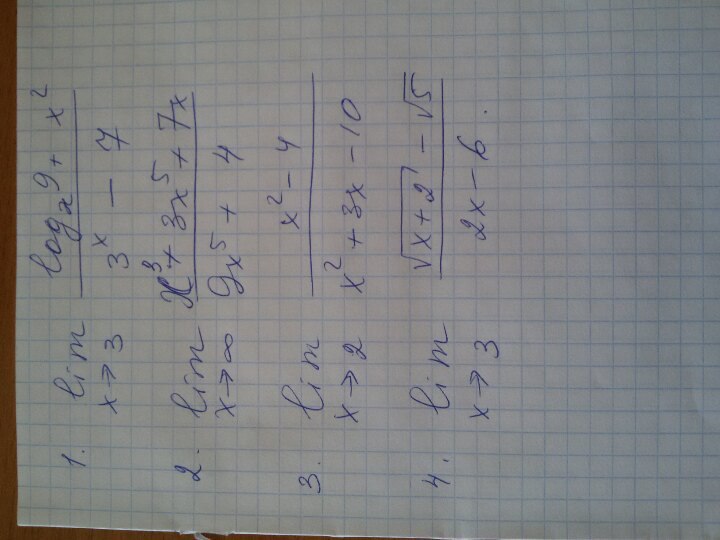 1. lim x→3 (log_x 9 + x²) / (3ˣ − 7)
2. lim x→∞ (x³ + 3x⁵ + 7x) / (9x⁵ + 4)
3. lim x→2 (x² − 4) / (x² + 3x − 10)
4. lim x→3 (√(x+2) − √5) / (2x − 6).